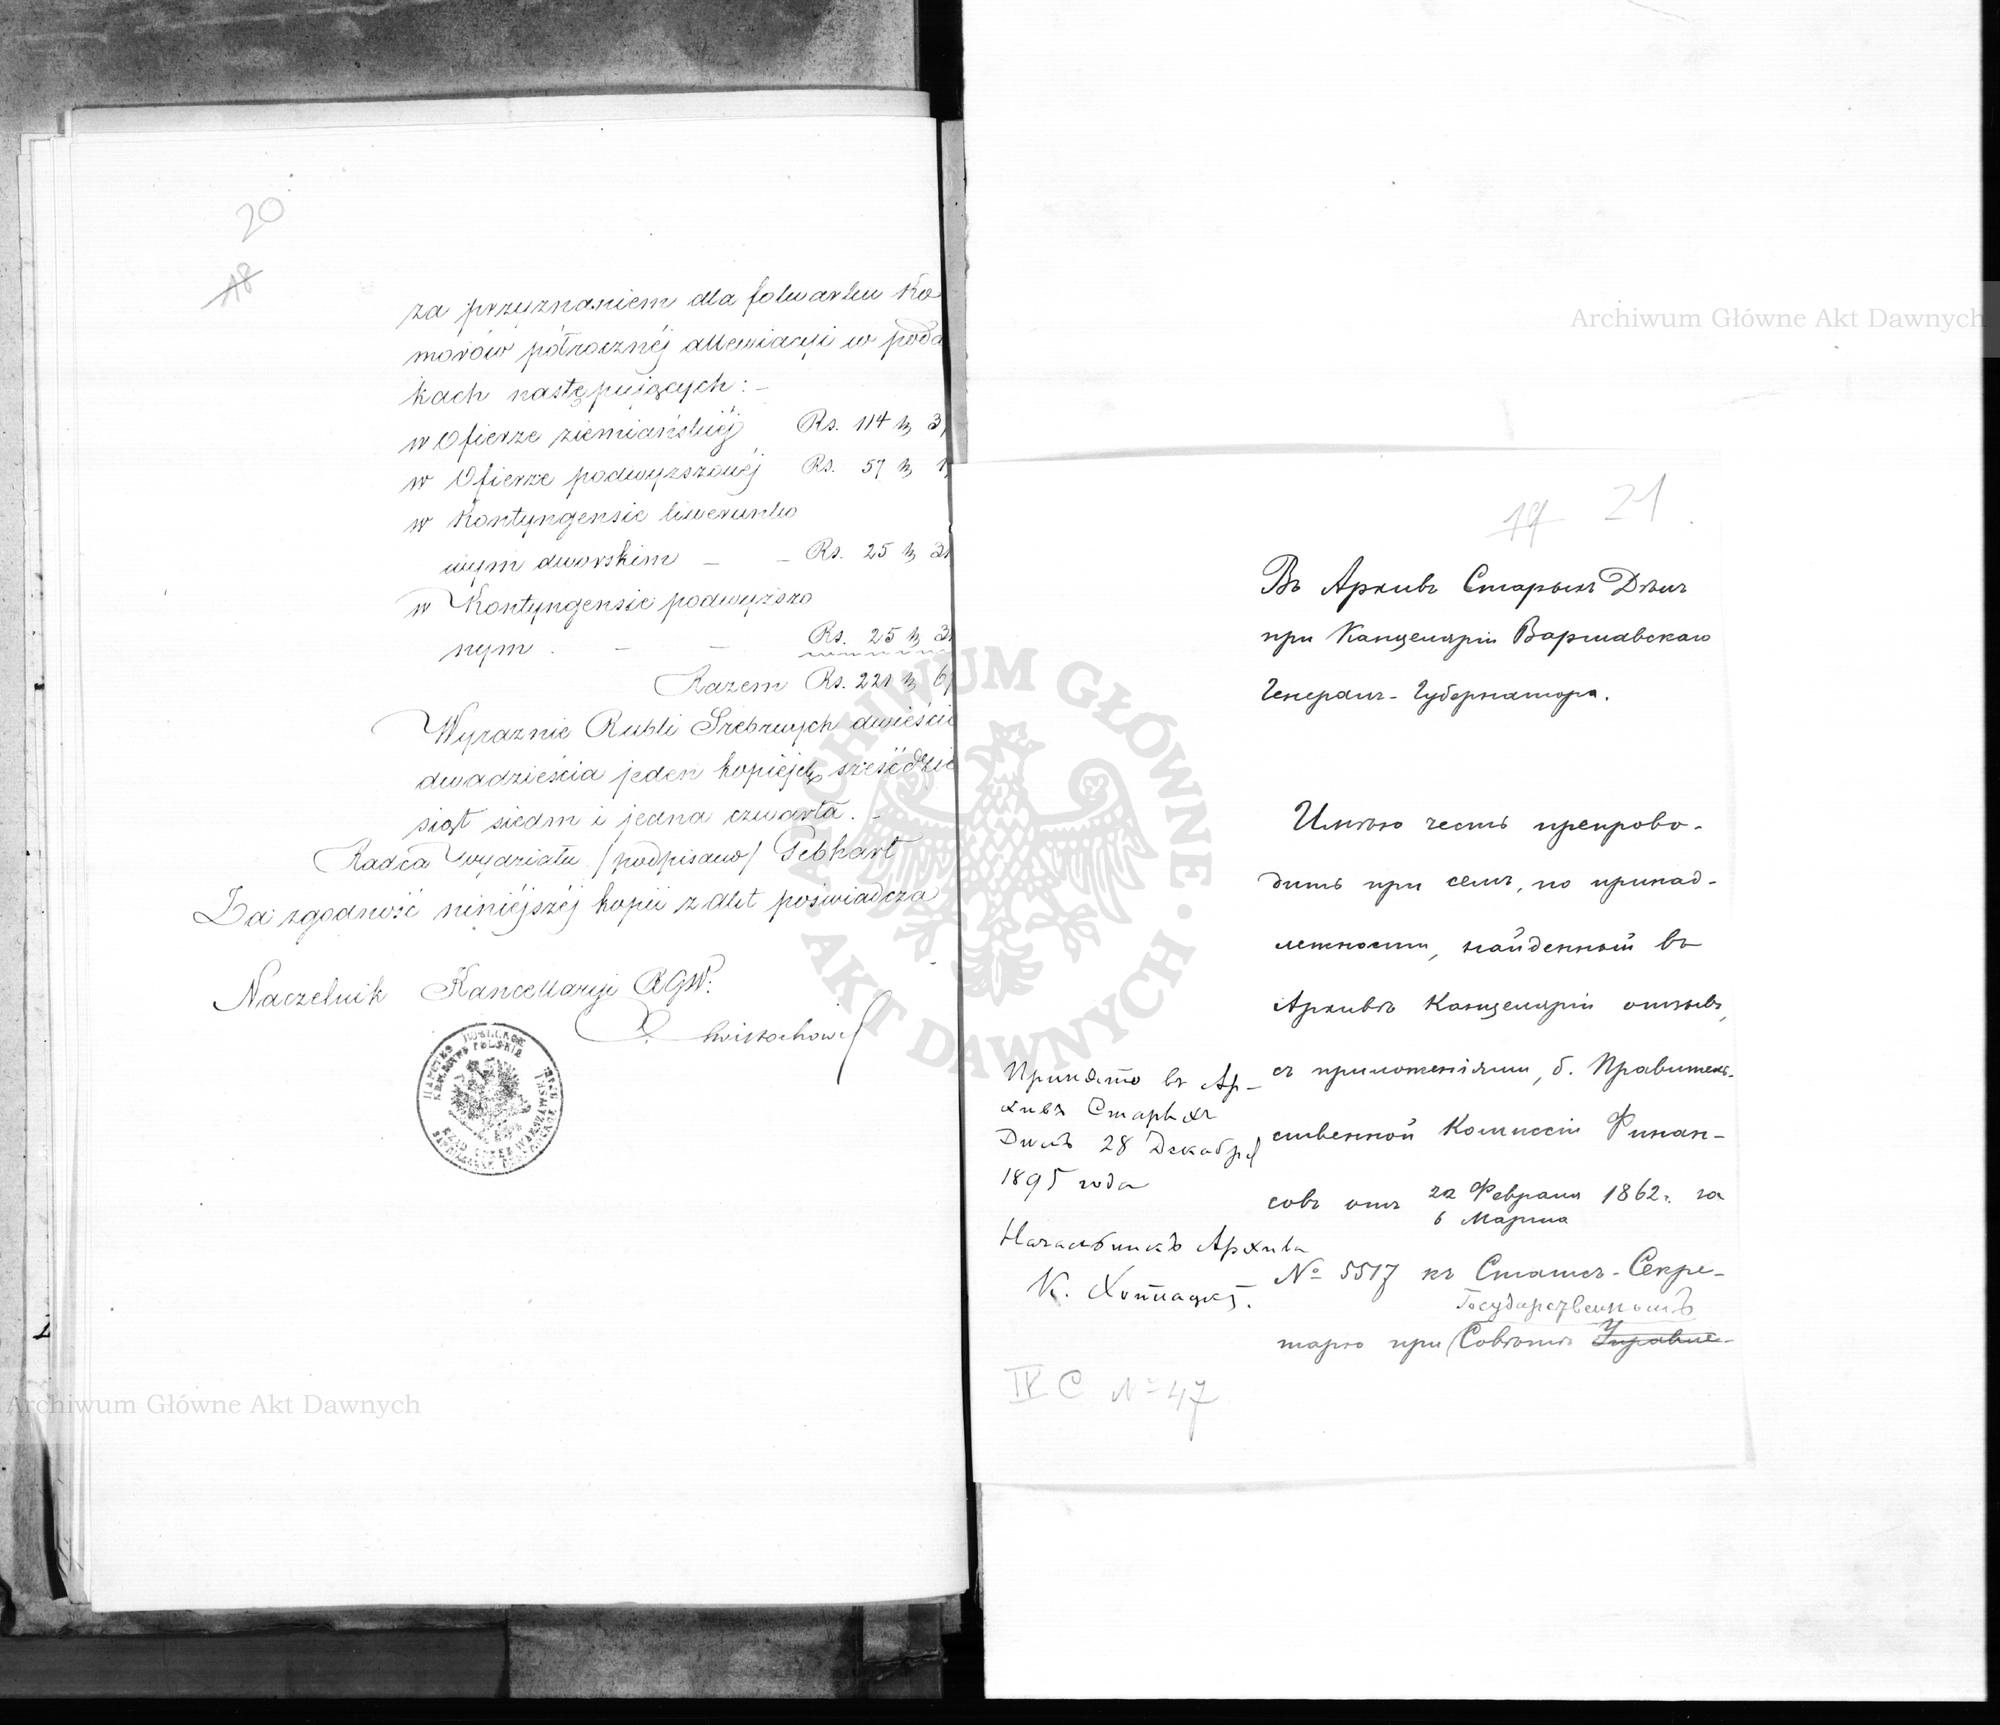 20
18
za przyznaniem dla folwarku Ko
morów półrocznéj allewiacyi w poda
kach następujących: –
w Ofierze ziemiańskiéj Rs. 114 k 3
w Ofierze podwyższonéj Rs. 57 k 1
w Kontyngensie liwerunko
wym dworskim – – Rs. 25 k 3
w Kontyngensie podwyższo
nym . – – Rs. 25 k 3
Razem Rs. 221 k 6
Wyraznie Rubli Srebrnych dwieście
dwadzieścia jeden kopiejek sześćdzie
siąt siedm i jedna czwarta. –
Radca Wydziału /podpisano/ Gebhart
Za zgodność niniéjszéj kopii z akt poświadcza
Naczelnik Kancellaryi RGW:
KRÓLESTWO POLSKIE
19 21
Въ Архивъ Старыхъ Дѣлъ
при Канцеляріи Варшавскаго
Генералъ-Губернатора.
Имѣю честь препрово-
дить при семъ, по принад-
лежности, найденный въ
Архивѣ Канцеляріи отзывъ,
съ приложеніями, б. Правитель-
ственной Коммиссіи Финан-
совъ отъ 22 Февраля 1862 г. за
6 Марта
№ 5517 къ Статсъ-Секре-
Государственномъ
тарю при Совѣтѣ Управле-
Принято въ Ар-
хивъ Старыхъ
Дѣлъ 28 Декабря
1895 года
Начальникъ Архива
К.
IV C № 47
Archiwum Główne Akt Dawnych
Archiwum Główne Akt Dawnych
ARCHIWUM GŁÓWNE AKT DAWNYCH